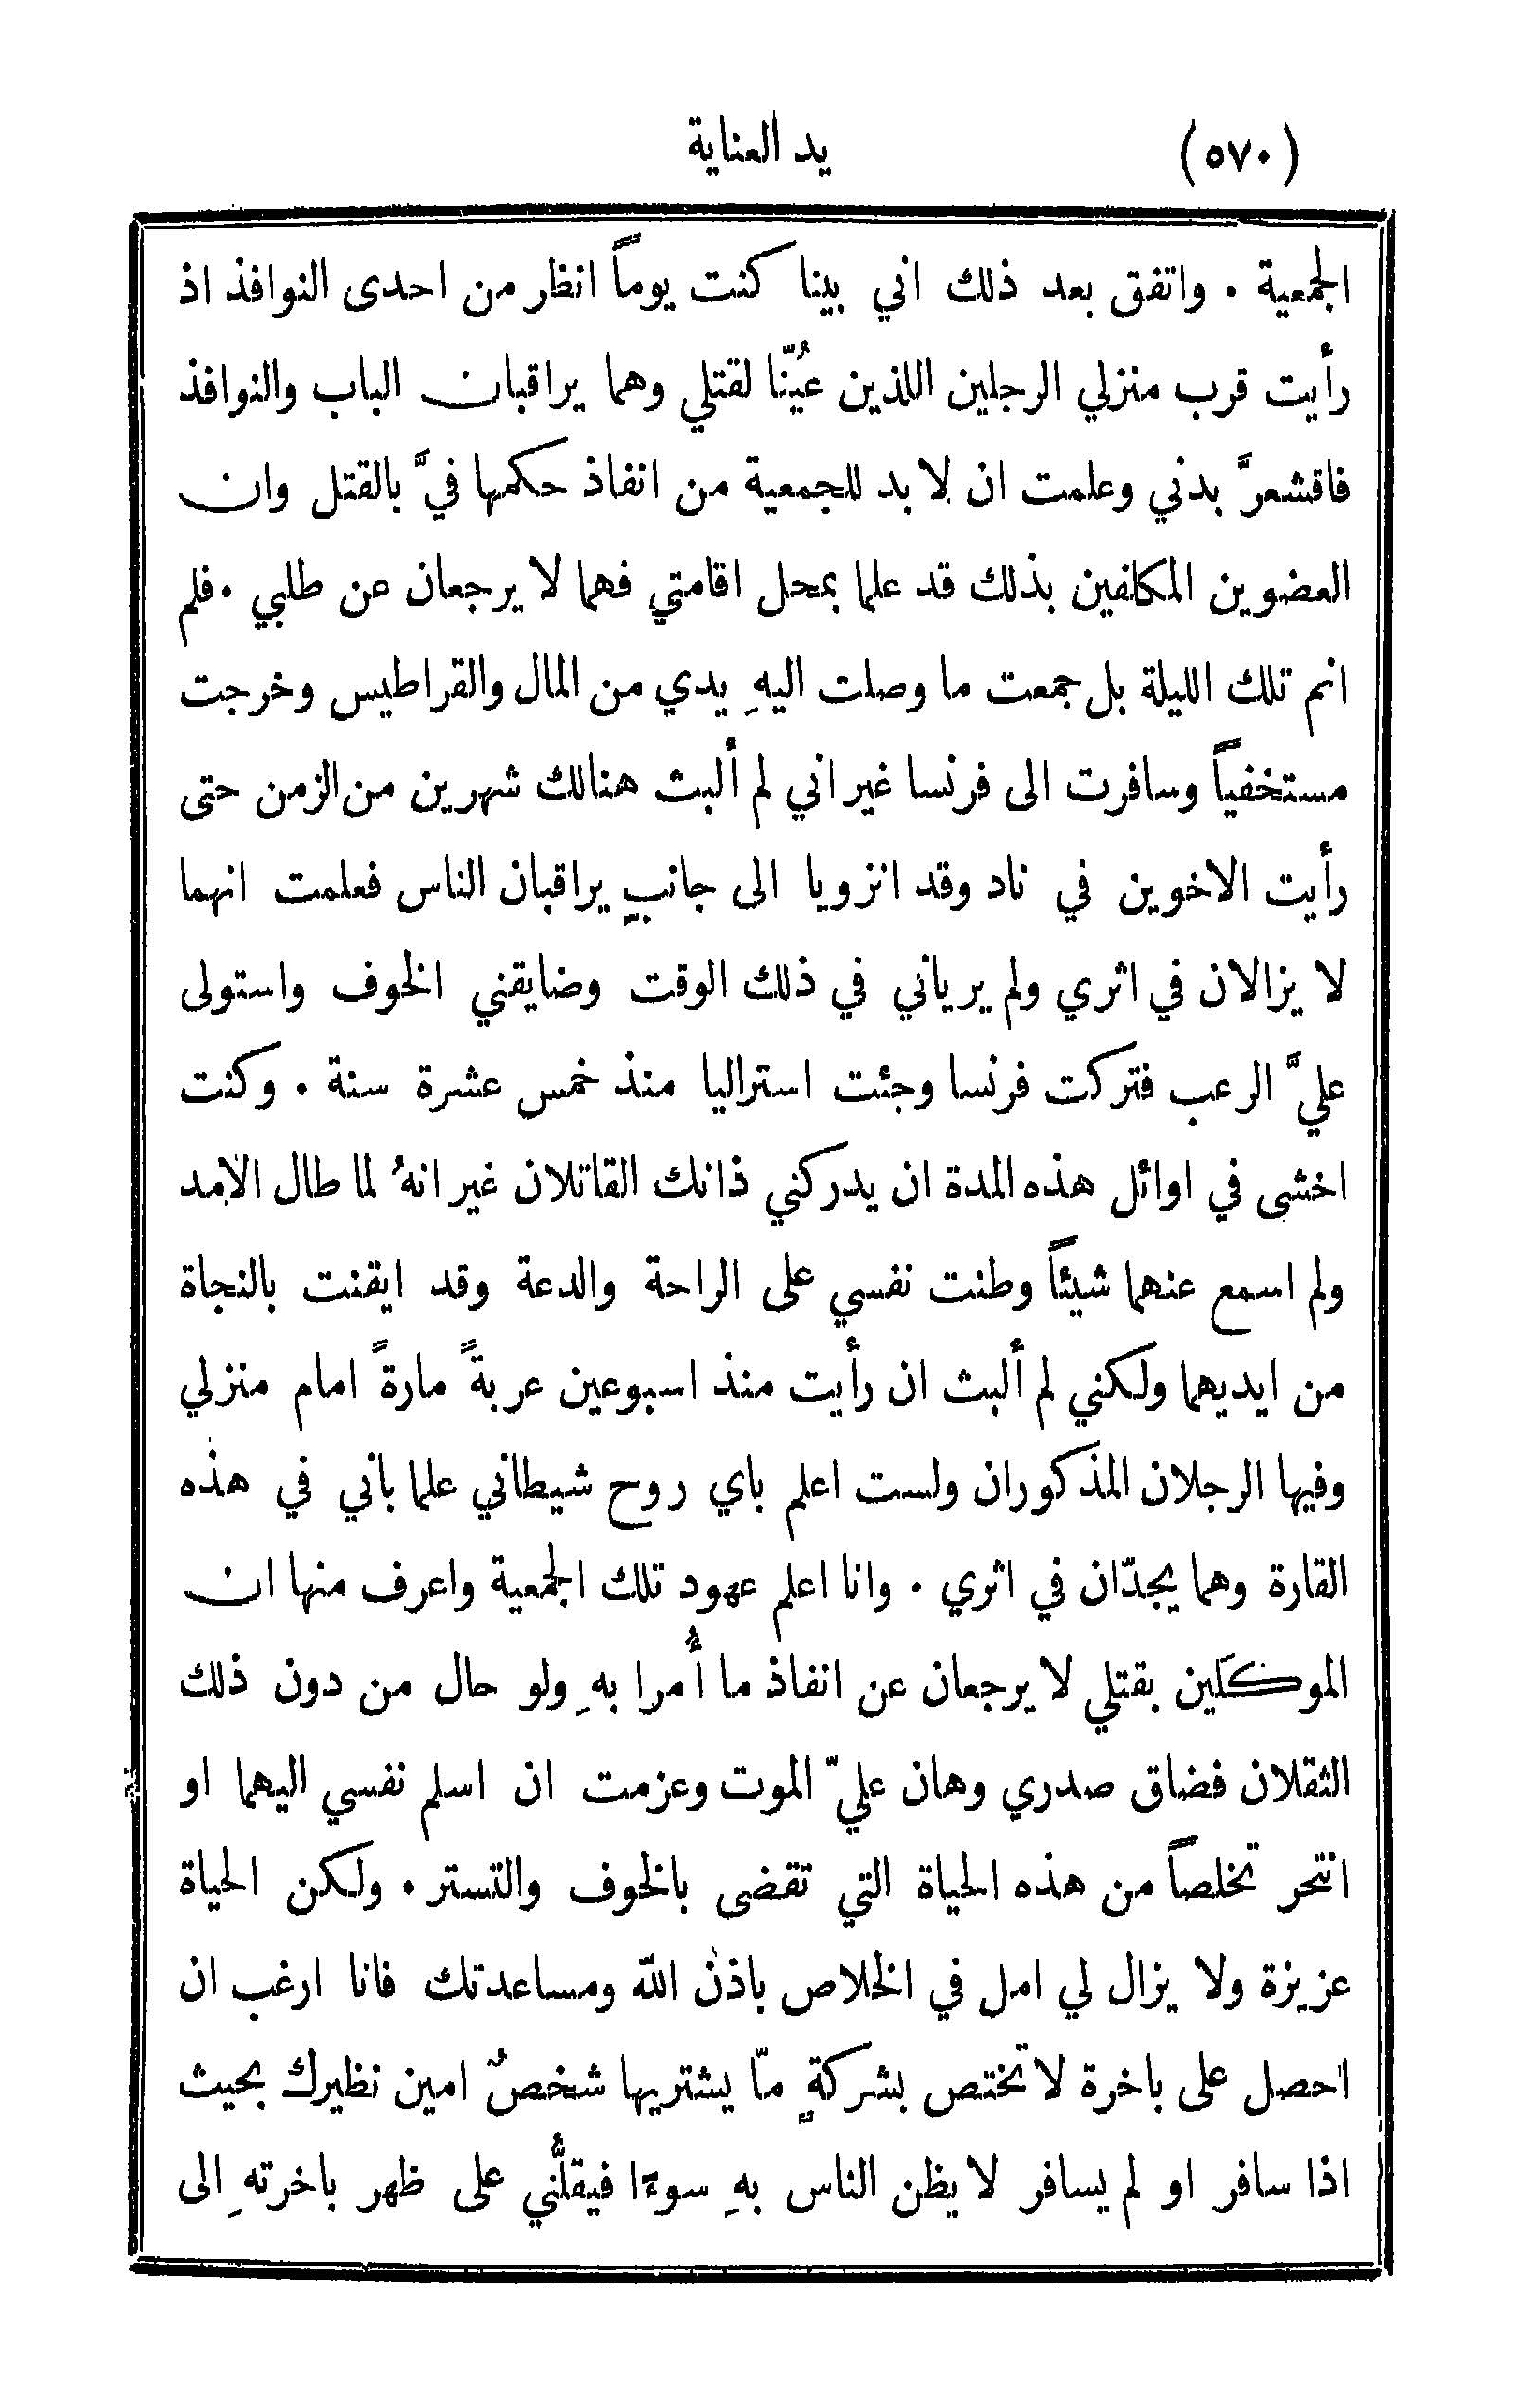 (٥٧٠) يد العناية
الجمعية . واتفق بعد ذلك اني بينا كنت يوماً انظار من احدى النوافذ اذ
رأيت قرب منزلي الرجلين اللذين عُيّنا لقتلي وهما يراقبان الباب والنوافذ
فاقشعرَّ بدني وعلمت ان لا بد للجمعية من انفاذ حكمها فيَّ بالقتل وان
العضوين المكلفين بذلك قد علما بمحل اقامتي فهما لا يرجعان عن طلبي . فلم
انم تلك الليلة بل جمعت ما وصلت اليهِ يدي من المال والقراطيس وخرجت
مستخفياً وسافرت الى فرنسا غير اني لم ألبث هنالك شهرين من الزمن حتى
رأيت الاخوين في ناد وقد انزويا الى جانبٍ يراقبان الناس فعلمت انهما
لا يزالان في اثري ولم يرياني في ذلك الوقت وضايقني الخوف واستولى
عليَّ الرعب فتركت فرنسا وجئت استراليا منذ خمس عشرة سنة . وكنت
اخشى في اوائل هذه المدة ان يدركني ذانك القاتلان غير انهُ لما طال الامد
ولم اسمع عنهما شيئاً وطنت نفسي على الراحة والدعة وقد ايقنت بالنجاة
من ايديهما ولكني لم ألبث ان رأيت منذ اسبوعين عربةً مارةً امام منزلي
وفيها الرجلان المذكوران ولست اعلم باي روح شيطاني علما باني في هذه
القارة وهما يجدّان في اثري . وانا اعلم عهود تلك الجمعية واعرف منها ان
الموكَلين بقتلي لا يرجعان عن انفاذ ما أُمرا بهِ ولو حال من دون ذلك
الثقلان فضاق صدري وهان عليّ الموت وعزمت ان اسلم نفسي اليهما او
انتحر تخلصاً من هذه الحياة التي تقضى بالخوف والتستر . ولكن الحياة
عزيزة ولا يزال لي امل في الخلاص باذن الله ومساعدتك فانا ارغب ان
احصل على باخرة لا تختص بشركةٍ مّا يشتريها شخصٌ امين نظيرك بحيث
اذا سافر او لم يسافر لا يظن الناس بهِ سوءًا فيقلُّني على ظهر باخرتهِ الى